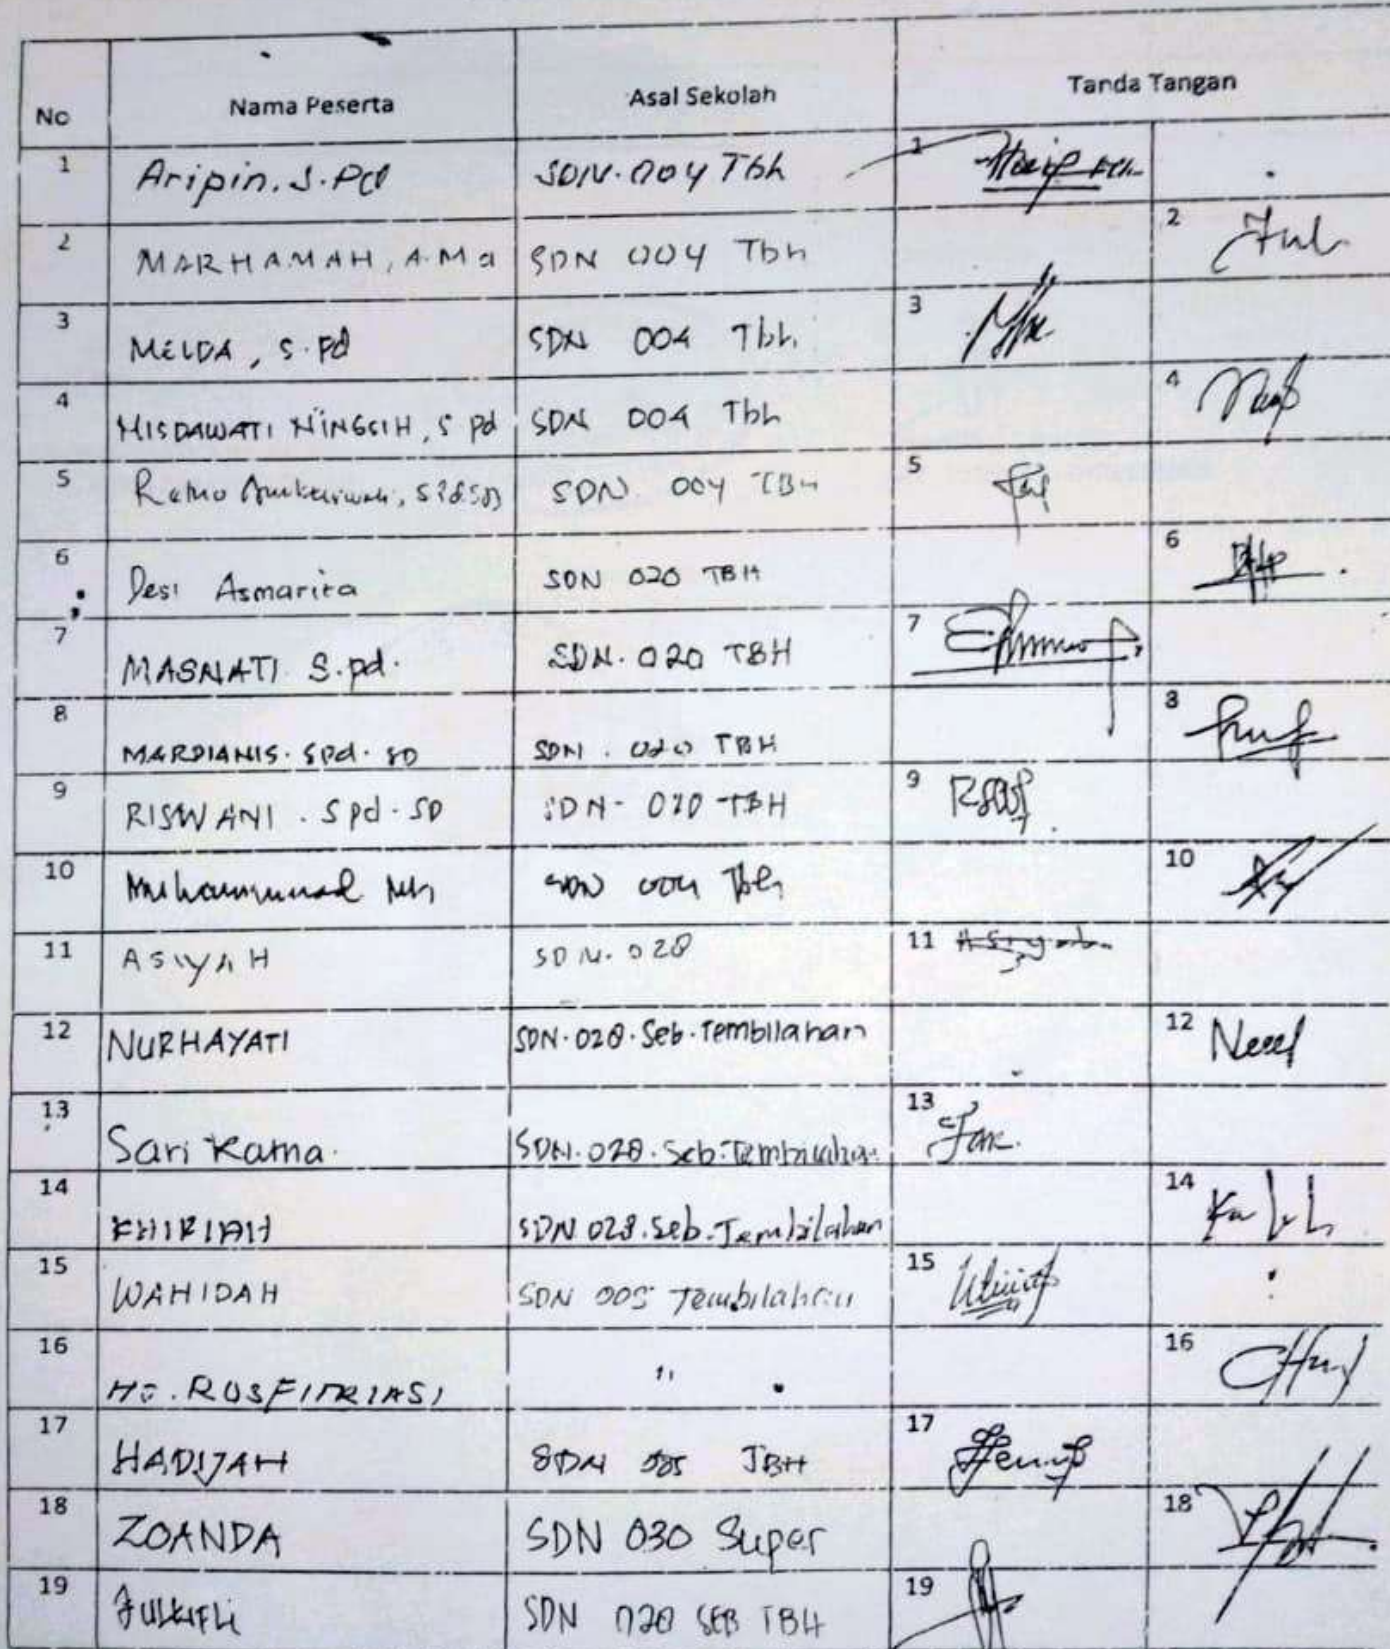 No Nama Peserta Asal Sekolah Tanda Tangan
1 Aripin. S.Pd SDN. 004 Tbh 1
2 MARHAMAH, A.Ma SDN 004 Tbh 2
3 MELDA, S.Pd SDN 004 Tbh 3
4 MISDAWATI NINGSIH, S Pd SDN 004 Tbh 4
5 SDN 004 TBH 5
6 Desi Asmarita SDN 020 TBH 6
7 MASNATI S.pd. SDN. 020 TBH 7
8 MARDIANIS. Spd. SD SDN. 020 TBH 8
9 RISWANI. Spd. SD SDN- 020 TBH 9
10 Muhammad SDN 004 Tbh 10
11 ASIYAH SDN. 028 11 Asiyah
12 NURHAYATI SDN. 028. Seb. Tembilahan 12
13 Sari Rama. SDN. 028. Seb. Tembilahan 13
14 KHIRIAH SDN 028. Seb. Tembilahan 14
15 WAHIDAH SDN 005 Tembilahan 15
16 HJ. ROSFITRIASI " 16
17 HADIJAH SDN 005 TBH 17
18 ZOANDA SDN 030 Super 18
19 ZULKIFLI SDN 028 SEB TBH 19